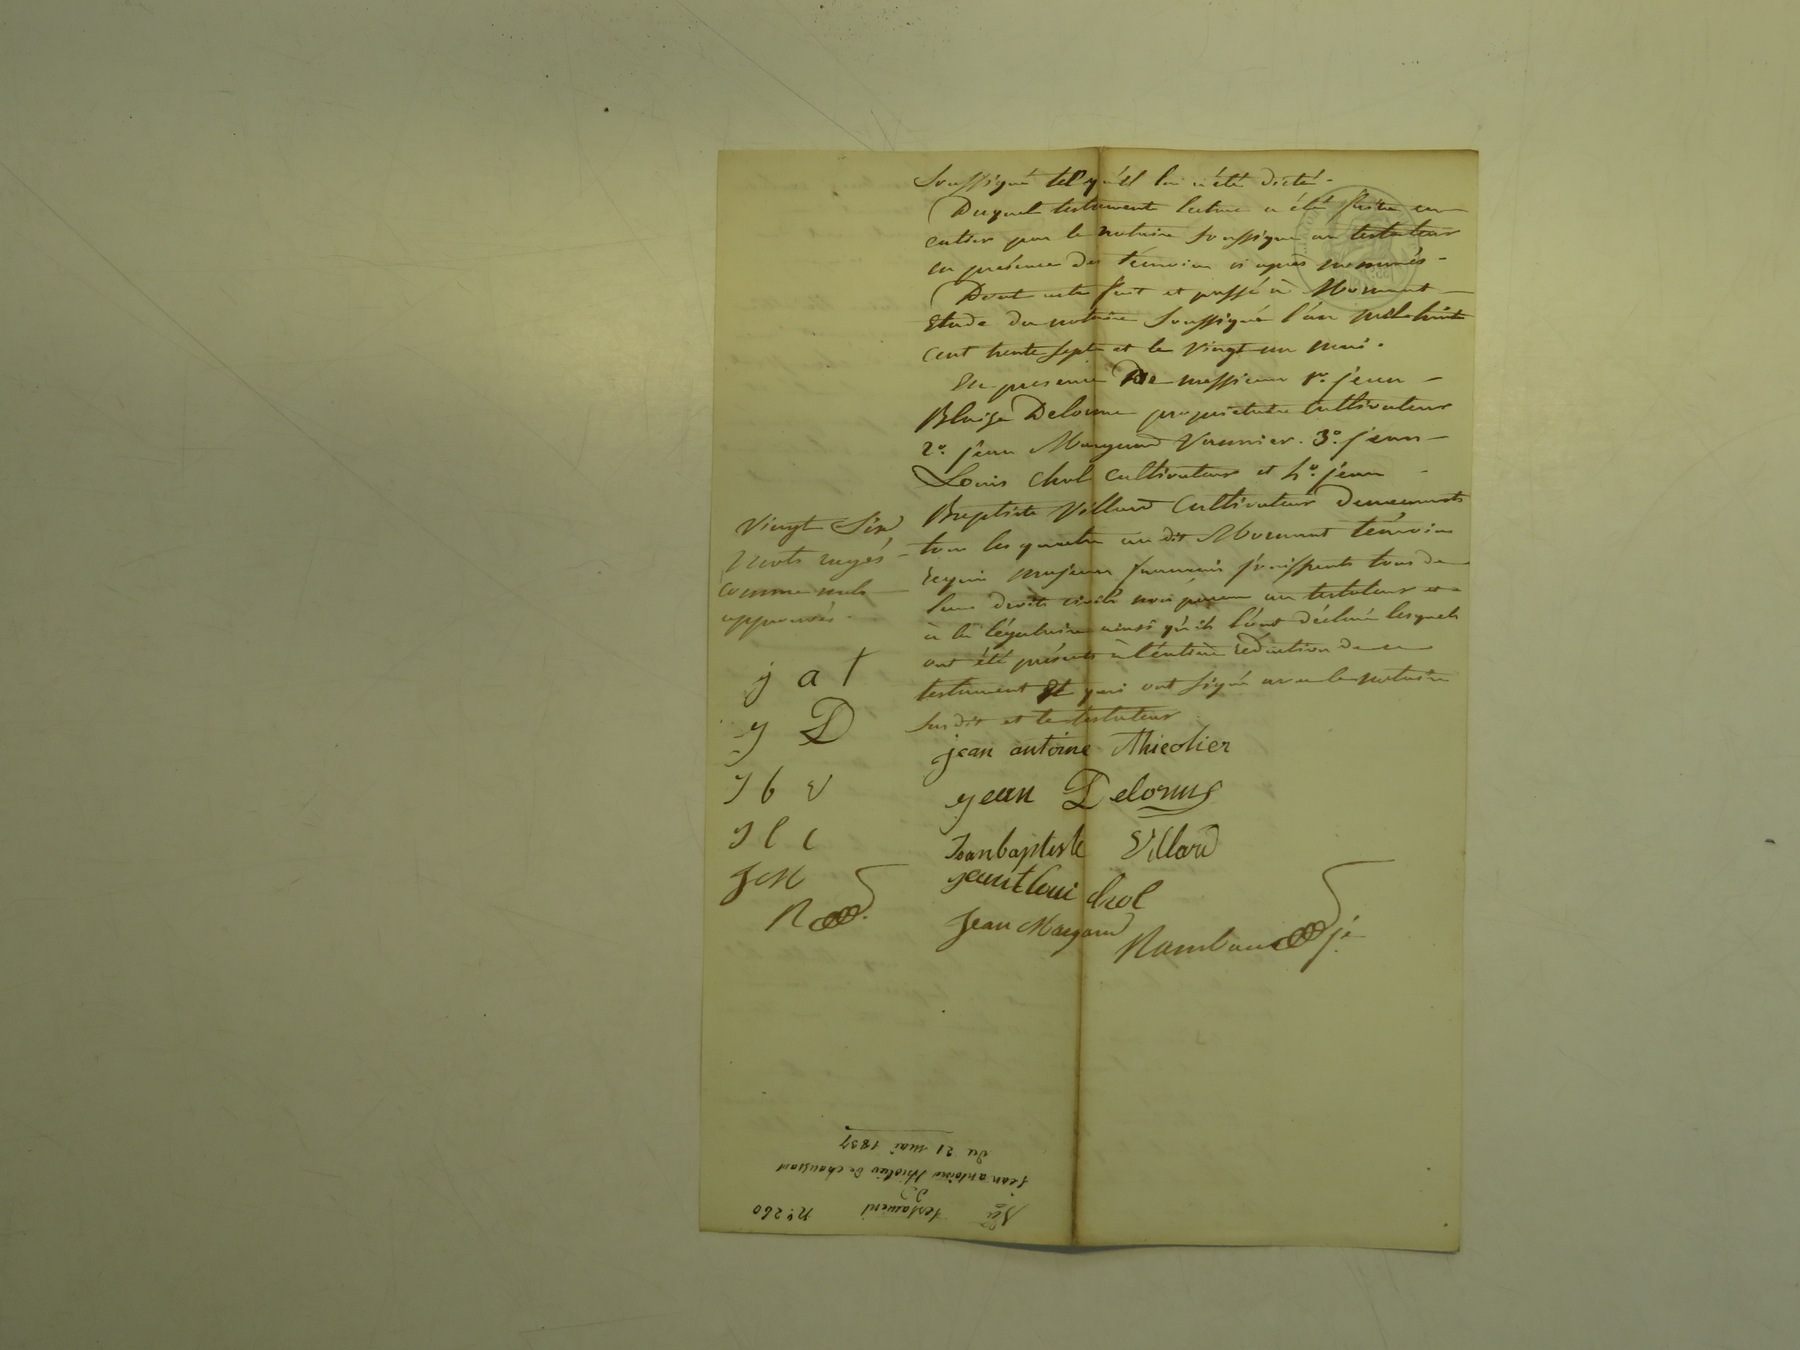 Soussigné tel qu'il lui a été dicté.
Duquel testament lecture a été faite en
entier par le notaire soussigné au testateur
en présence des témoins ci après nommés.
Dont acte fait et passé à Mornant
Etude du notaire soussigné l'an mil huit
cent trente sept et le vingt un mai.
En présence De messieurs 1º. jean
Blaise Delorme propriétaire cultivateur
2º. jean Margand Vannier. 3º. jean
Louis Chol cultivateur et 4º. jean
Baptiste Villard Cultivateur demeurants
tous les quatre au dit Mornant témoins
requis majeurs français jouissants tous de
leurs droits civils non parens au testateur et
à la légataire ainsi qu'ils l'ont déclaré lesquels
ont été présents à l'entière rédaction de ce
testament et qui ont signé avec le notaire
susdit et le testateur
Vingt six
mots rayés
comme nuls
approuvés.
j a t
j D
J b V
J l c
J M
R
jean antoine thieolier
jean Delorme
Jean baptiste Villard
jean loui chol
Jean Margand
Rambaud je
Nº 260 testament
jean antoine thiolier de chaussan
du 21 mai 1837